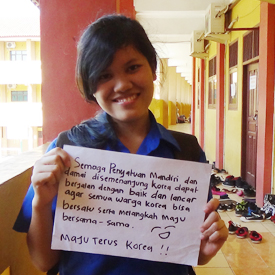 Semoga Penyatuan Mandiri dan
damai disemenanjung Korea dapat
berjalan dengan baik dan lancar
agar semua warga Korea bisa
bersatu serta merangkah maju
bersama-sama.
Maju Terus Korea !!